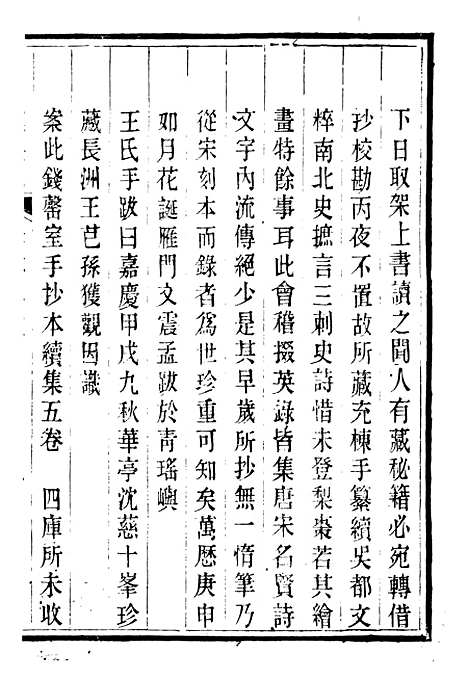 下日取架上書讀之聞人有藏秘籍必宛轉借
抄校勘丙夜不置故所藏充棟手纂續吳都文
粹南北史摭言三刺史詩惜未登梨棗若其繪
畫特餘事耳此會稽掇英錄皆集唐宋名賢詩
文字內流傳絕少是其早歲所抄無一惰筆乃
從宋刻本而錄者為世珍重可知矣萬歷庚申
如月花誕雁門文震孟跋於青瑤嶼
王氏手跋曰嘉慶甲戌九秋華亭沈慈十峯珍
藏長洲王芑孫獲觀因識
案此錢罄室手抄本續集五卷　四庫所未收